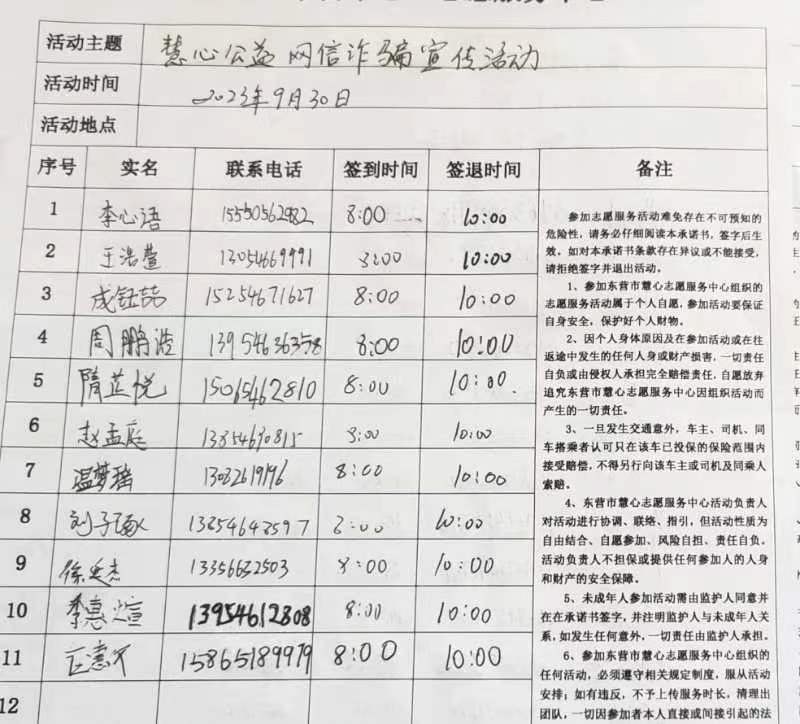 活动主题 慧心公益网信诈骗宣传活动
活动时间 2023年9月30日
活动地点
序号 实名 联系电话 签到时间 签退时间 备注
1 李心语 15550562982 8:00 10:00
2 王浩萱 13054669991 8:00 10:00
3 成钰喆 15254671627 8:00 10:00
4 周鹏浩 13954636358 8:00 10:00
5 隋芷悦 15065462810 8:00 10:00
6 赵孟庭 8:00 10:00
7 温梦瑶 8:00 10:00
8 刘子琢 8:00 10:00
9 13356632503 8:00 10:00
10 李惠煊 13954612808 8:00 10:00
11 15865189979 8:00 10:00
12
参加志愿服务活动难免存在不可预知的
危险性，请务必仔细阅读本承诺书，签字后生
效。如对本承诺书条款存在异议或不能接受，
请拒绝签字并退出活动。
1、参加东营市慧心志愿服务中心组织的
志愿服务活动属于个人自愿，参加活动要保证
自身安全，保护好个人财物。
2、因个人身体原因及在参加活动或在往
返途中发生的任何人身或财产损害，一切责任
自负或由侵权人承担完全赔偿责任，自愿放弃
追究东营市慧心志愿服务中心因组织活动而
产生的一切责任。
3、一旦发生交通意外，车主、司机、同
车搭乘者认可只在该车已投保的保险范围内
接受赔偿，不得另行向该车主或司机及同乘人
索赔。
4、东营市慧心志愿服务中心活动负责人
对活动进行协调、联络、指引，但活动性质为
自由结合、自愿参加、风险自担、责任自负。
活动负责人不担保或提供任何参加人的人身
和财产的安全保障。
5、未成年人参加活动需由监护人同意并
在在承诺书签字，并注明监护人与未成年人关
系，如发生任何意外，一切责任由监护人承担。
6、参加东营市慧心志愿服务中心组织的
任何活动，必须遵守相关规定制度，服从活动
安排；如有违反，不予上传服务时长，清理出
团队，一切因参加者本人直接或间接引起的法